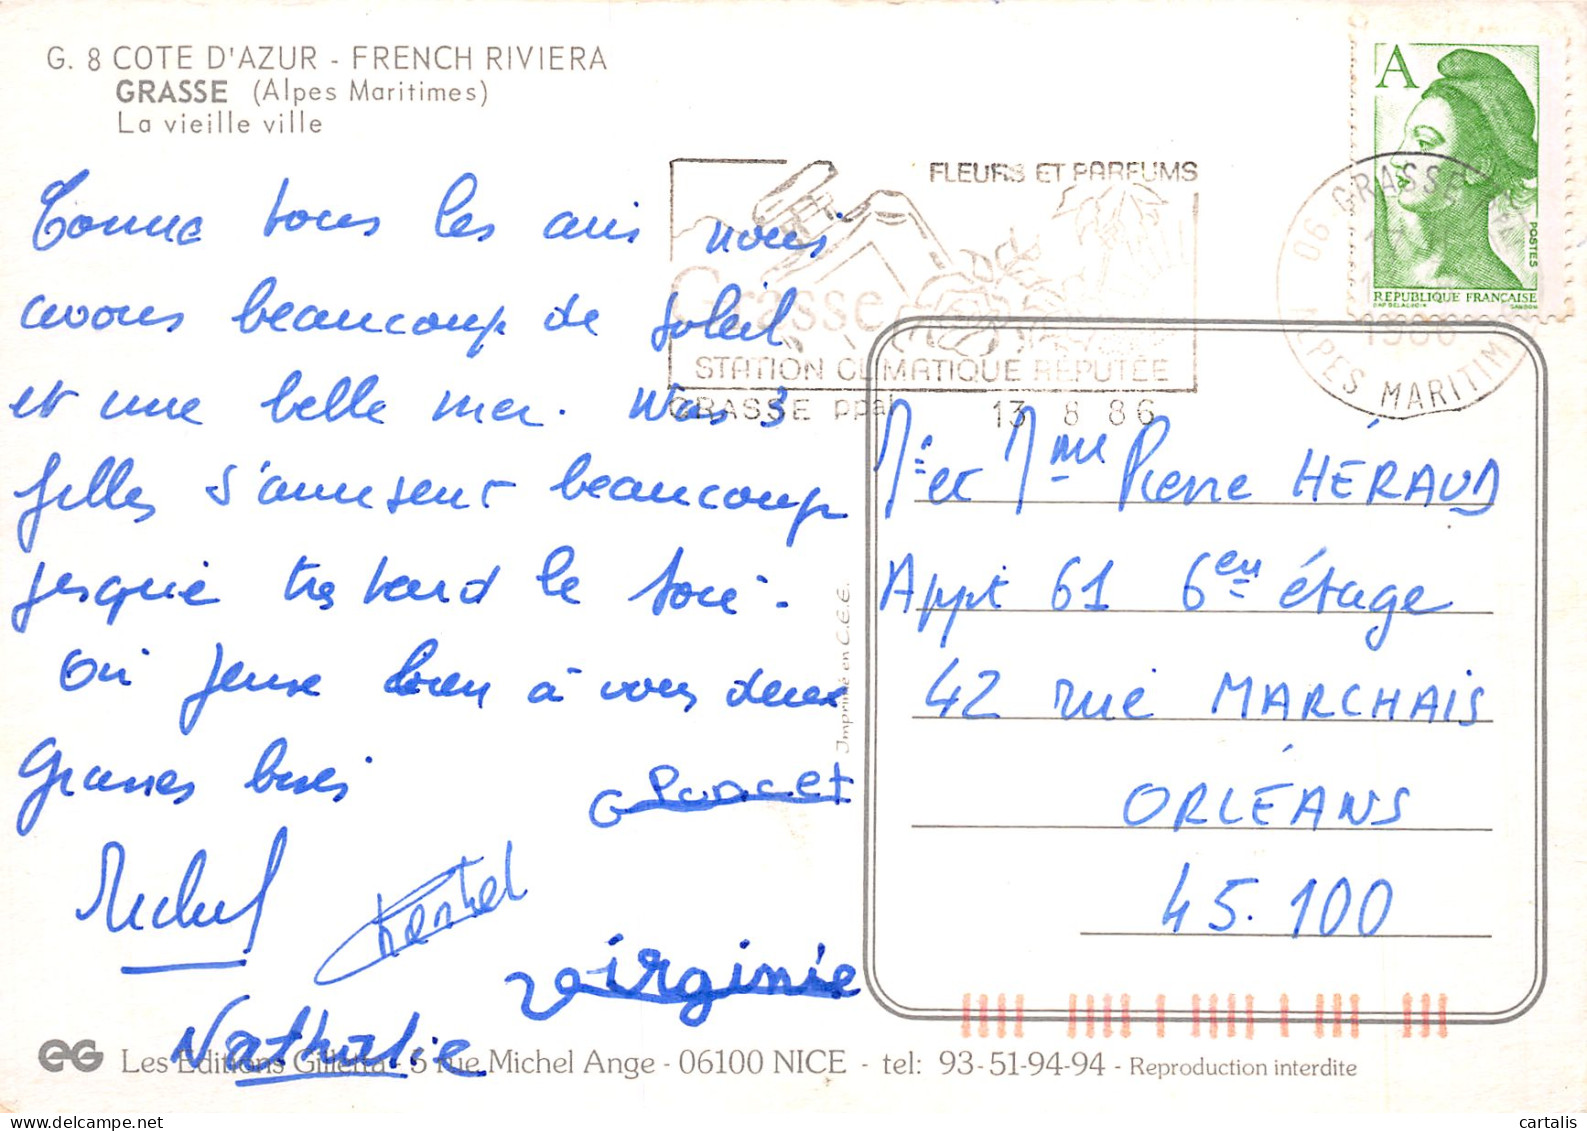 G. 8 COTE D'AZUR - FRENCH RIVIERA
GRASSE (Alpes Maritimes)
La vieille ville
A
REPUBLIQUE FRANÇAISE
POSTES
FLEURS ET PARFUMS
Grasse
STATION CLIMATIQUE RÉPUTÉE
GRASSE ppal 13 8 86
06 GRASSE
1986
ALPES MARITIM
Comme tous les ans nous
avons beaucoup de soleil
et une belle mer. Nos 3
filles s'amusent beaucoup
jusque très tard le soir.
On pense bien à vous deux
Grosses bises
Michel
Chantal
Virginie
Nathalie
Mr et Mme Pierre HÉRAUD
Appt 61 6em étage
42 rue MARCHAIS
ORLÉANS
45.100
Imprimé en C.E.E.
EG Les Editions Gilletta - 5 rue Michel Ange - 06100 NICE - tel: 93-51-94-94 - Reproduction interdite
cartalis